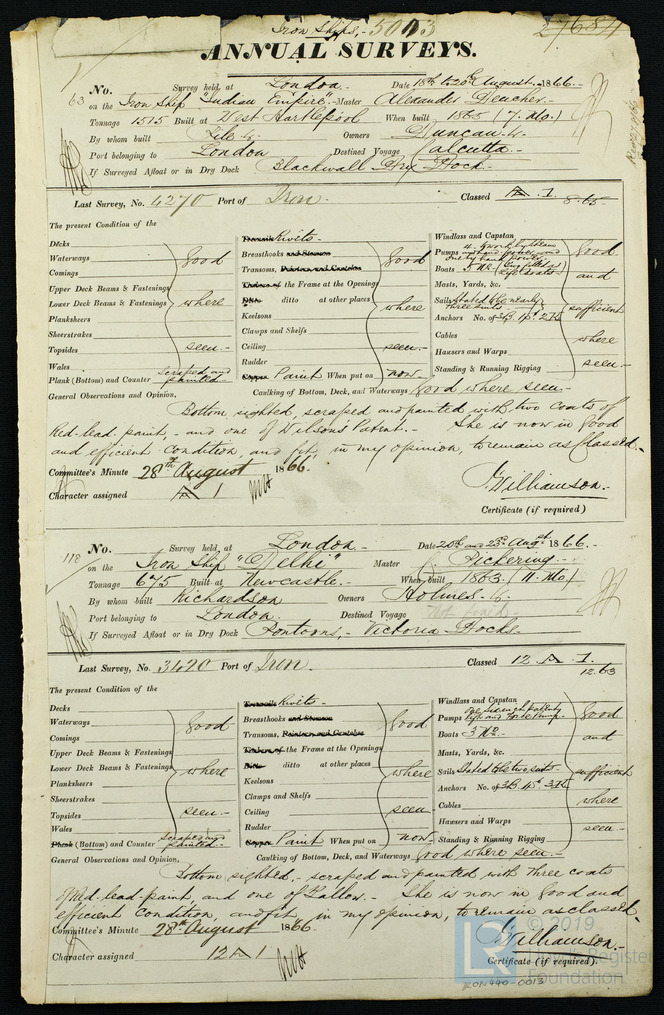 Iron Ships, 5013
27684
ANNUAL SURVEYS.
63 No. Survey held at London. Date 18th to 20th August, 1866.
on the Iron Ship "Indian Empire" Master Alexander Deucher
Tonnage 1515 Built at West Hartlepool When built 1865 (7. Mo.)
By whom built Pile & Co Owners Duncan & Co
Port belonging to London Destined Voyage Calcutta
If Surveyed Afloat or in Dry Dock Blackwall Dry Dock
Last Survey, No. 4270 Port of Iron. Classed A 1. 8.65
The present Condition of the
Decks
Waterways
Comings
Upper Deck Beams & Fastenings
Lower Deck Beams & Fastenings
Planksheers
Sheerstrakes
Topsides
Wales
Plank (Bottom) and Counter scraped and painted
good where seen.
Transoils Rivits
Breasthooks and Stemson
Transoms, Pointers and Crutches
Timbers of the Frame at the Openings
Ditto ditto at other places
Keelsons
Clamps and Shelfs
Ceiling
Rudder
Copper Paint When put on now
good where seen.
Windlass and Capstan
Pumps 4
Boats 5 No.
Masts, Yards, &c.
Sails stated to be nearly
Anchors No. of 3B. 1S. 2K
Cables
Hausers and Warps
Standing & Running Rigging
good and sufficient where seen
Caulking of Bottom, Deck, and Waterways good where seen.
General Observations and Opinion,
Bottom sighted, scraped and painted with two coats of
Red-lead paint, and one of Wilsons Patent. She is now in good
and efficient condition, and fit, in my opinion, to remain as Classed.
Committee's Minute 28th August 1866.
Character assigned A 1
J. Williamson.
Certificate (if required)
118 No. Survey held at London. Date 20th and 23rd Augst 1866.
on the Iron Ship "Delhi" Master Pickering
Tonnage 675 Built at Newcastle When built 1863 (11. Mo)
By whom built Richardson Owners Holmes & Co
Port belonging to London Destined Voyage
If Surveyed Afloat or in Dry Dock Pontoons, Victoria Docks
Last Survey, No. 3490 Port of Iron. Classed 12 A 1. 12.63
The present Condition of the
Decks
Waterways
Comings
Upper Deck Beams & Fastenings
Lower Deck Beams & Fastenings
Planksheers
Sheerstrakes
Topsides
Wales
Plank (Bottom) and Counter scraped and painted
good where seen
Rivits
Breasthooks and Stemson
Transoms, Pointers and Crutches
Timbers of the Frame at the Openings
Ditto ditto at other places
Keelsons
Clamps and Shelfs
Ceiling
Rudder
Copper Paint When put on now
good where seen
Windlass and Capstan
Pumps
Boats 3 No.
Masts, Yards, &c.
Sails Stated to be two suits
Anchors No. of 3B. 4S. 3K
Cables
Hausers and Warps
Standing & Running Rigging
good and sufficient where seen
Caulking of Bottom, Deck, and Waterways good where seen.
General Observations and Opinion,
Bottom sighted, scraped and painted with three coats
Red-lead-paint, and one of Tallow. She is now in good and
efficient condition, and fit, in my opinion, to remain as classed.
Committee's Minute 28th August 1866.
Character assigned 12 A 1
J. Williamson.
Certificate (if required).
© 2019
LR Lloyd's Register
Foundation
IRON490-0013